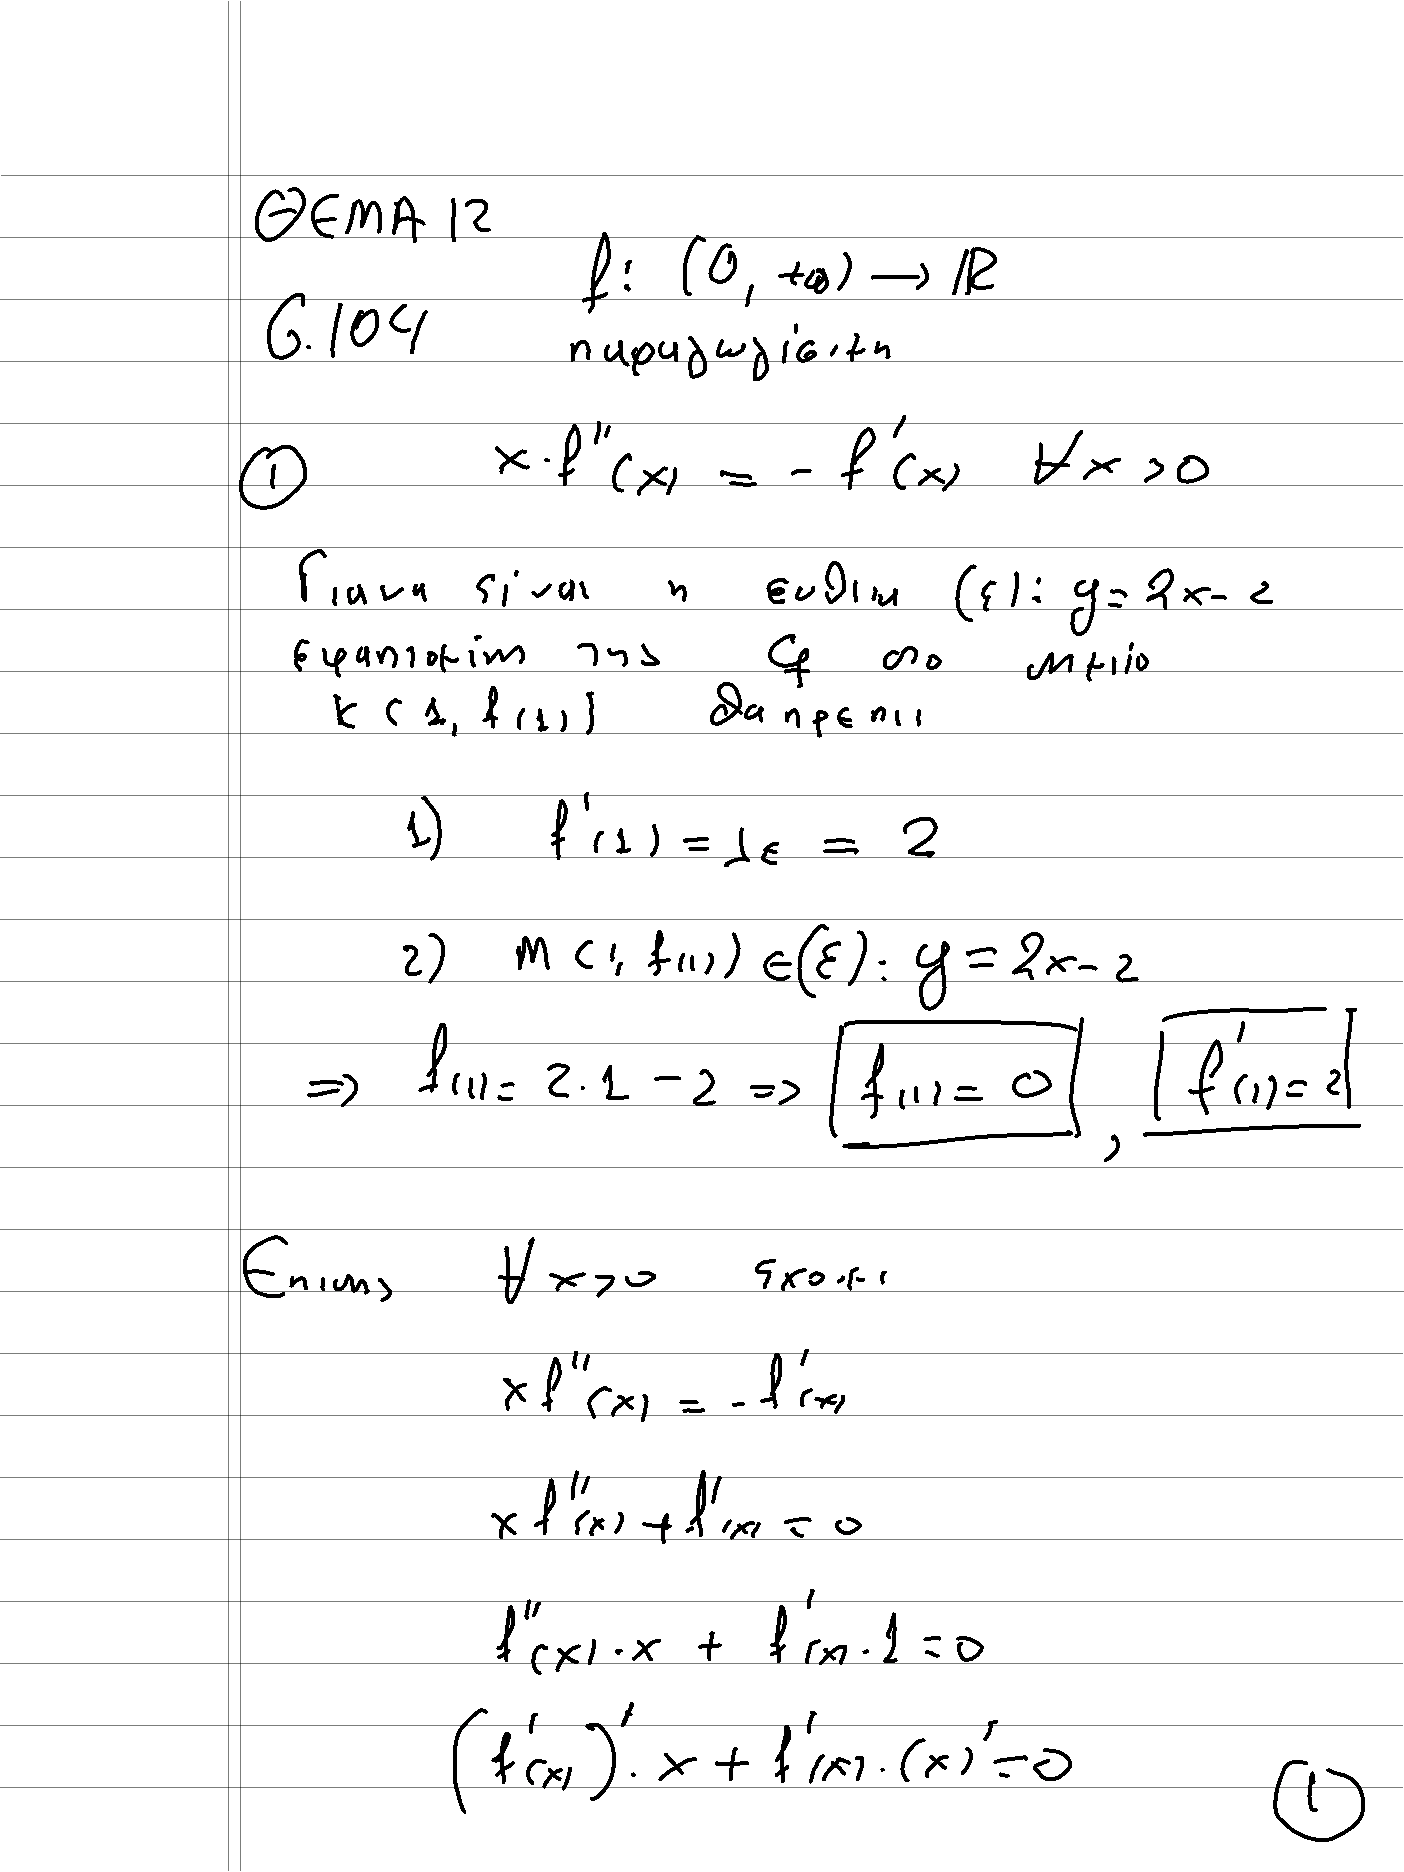 ΘΕΜΑ 12
f: (0, +∞) → ℝ
σ.104
παραγωγίσιμη
① x·f''(x) = -f'(x) ∀x>0
Για να είναι η ευθεία (ε): y=2x-2
εφαπτομένη της Cf στο σημείο
κ(1, f(1)) θα πρέπει
1) f'(1) = λε = 2
2) M(1, f(1)) ∈(ε): y=2x-2
⇒ f(1)= 2·1-2 ⇒ f(1)=0 , f'(1)=2
Επίσης ∀x>0 έχουμε
xf''(x) = -f'(x)
xf''(x)+f'(x)=0
f''(x)·x + f'(x)·1=0
(f'(x))'·x+f'(x)·(x)'=0
①